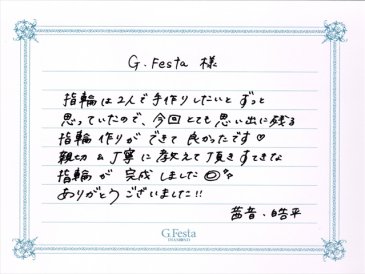 G.Festa 様
指輪は2人で手作りしたいと ずっと
思っていたので、今回とても思い出に残る
指輪作りができて良かったです♡
親切&丁寧に教えて頂きすてきな
指輪が完成しました◎°*
ありがとうございました!!
茜音・皓平
G.Festa
DIAMOND